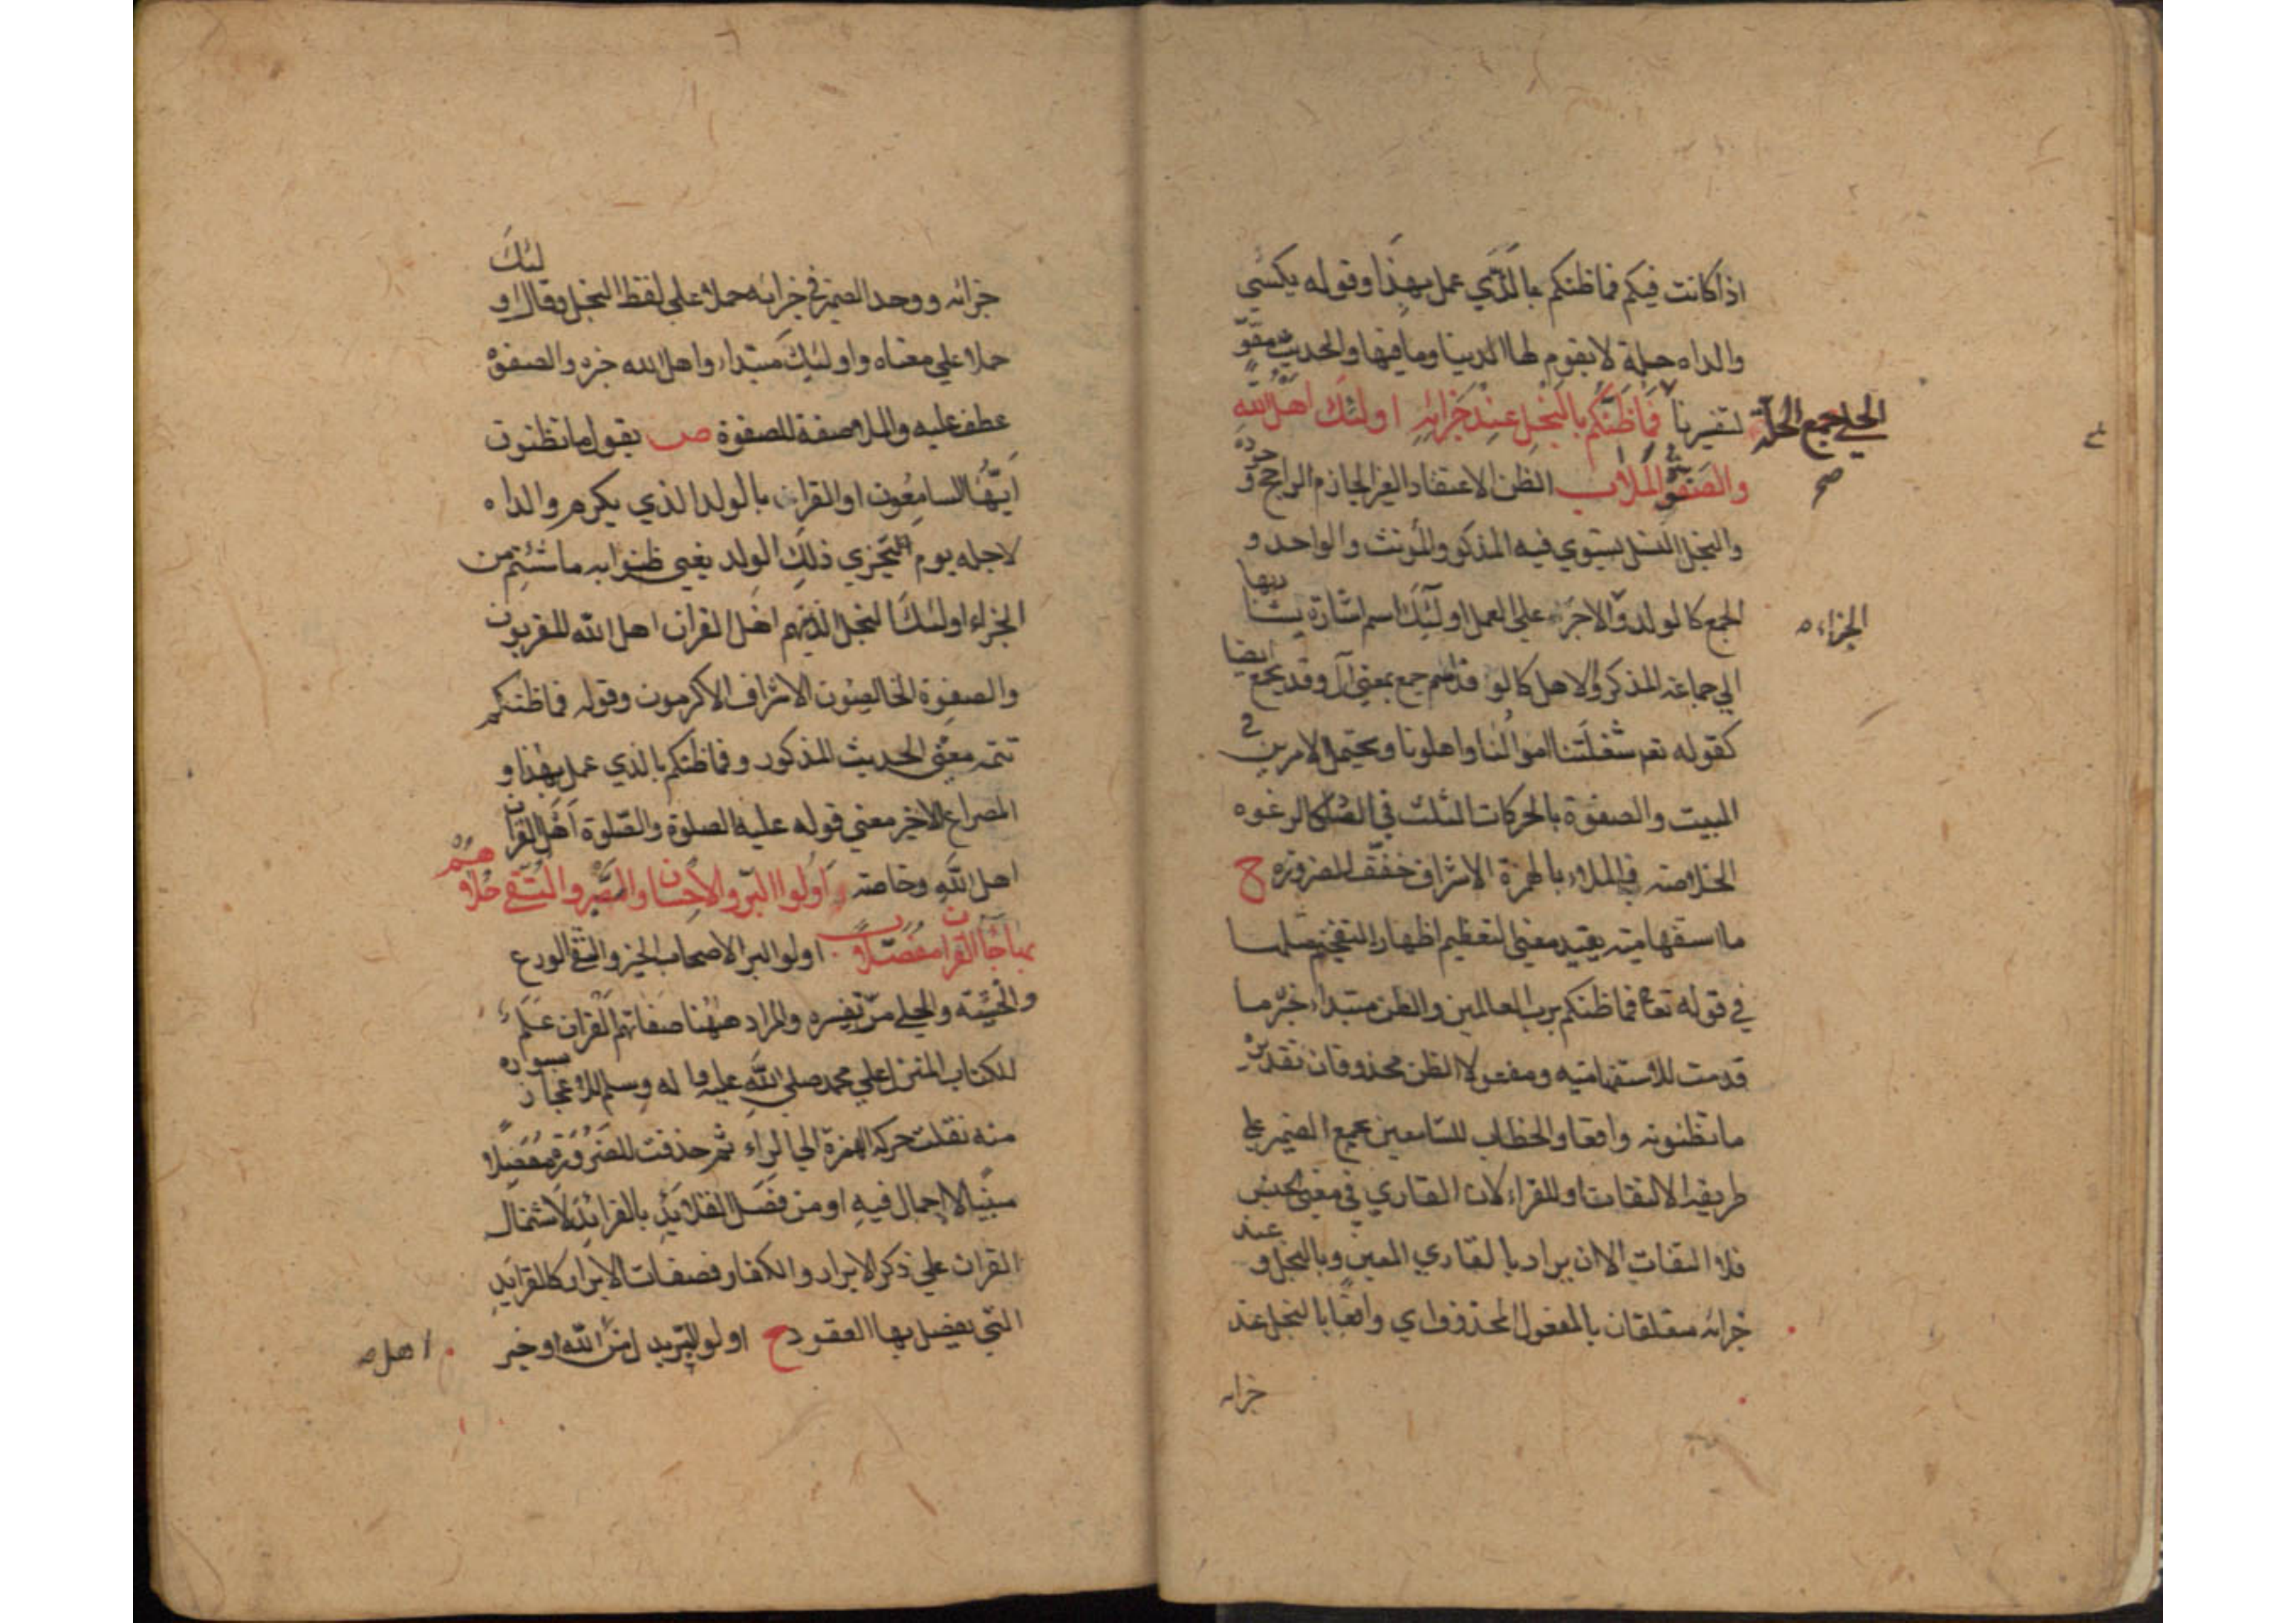 اذا كانت فيكم فما ظنكم بالذي عمل بهذا وقوله يكسي
والداه حلة لا يقوم لها الدنيا وما فيها والحديث مقو
لتفسيرنا فما ظنكم بالنجل عند جزائه اولئك اهل الله
الحلي جمع الحلة صح
والصفوة الملا ب الظن الاعتقاد الغير الجازم الراجح و
والنجل النسل يستوي فيه المذكر والمؤنث والواحد و
الجمع كالولد والاجر على العمل اولئك اسم اشارة يشار بها
الجزاء
الي جماعة المذكر والاهل كالو اسم جمع بمعني آل وقد يجمع ايضا
كقوله تعم شغلتنا اموالنا واهلونا ويحتمل الامرين في
البيت والصفوة بالحركات الثلث في الصاد كالرغوه
الخلاصه والملاء بالهمزة الاشراف خفف للضرورة ح
ما استفهامية يفيد معني التعظيم اظهار التفخيم مثلها
في قوله تعا فما ظنكم برب العالمين والظن مبتداء خبر ما
قدمت للاستفهاميه ومفعولا الظن محذوفان تقديره
ما تظنونه واقعا والخطاب للسامعين بجمع الضمير علي
طريقه الالتفات او للقراء لان القاري في معني الجنس
فلا التفات الا ان يراد بالقاري المعين وبالنجل و عند
جزائه متعلقان بالمفعول المحذوف اي واقعا بالنجل عند
جزائه
جزائه ووحد الضمير في جزائه حملا علي لفظ النجل وقال اولئك
حملا علي معناه واولئك مبتداء واهل الله خبره والصفوة
عطف عليه والملا صفة للصفوة ص يقول ما تظنون
ايها السامعون او القراء بالولد الذي يكرم والداه
لاجله يوم يجزي ذلك الولد يعني ظنوا به ما شئتم من
الجزاء اولئك النجل الذينهم اهل القران اهل الله المقربون
والصفوة الخالصون الاشراف الاكرمون وقوله فما ظنكم
تتمه معني الحديث المذكور وفما ظنكم بالذي عمل بهذا و
المصراع الاخير معني قوله عليه الصلوة والصلوة اهل القران
اهل الله وخاصته اولوا البر والاحسان والصبر والتقي حلاهم
بها جاء القران مفصلا ب اولو البر الاصحاب الخير والتقي الورع
والخشية والحلي مر تفسيره والمراد ههنا صفاتهم القران علم
للكتاب المنزل علي محمد صلي الله عليه واله وسلم للاعجاز بسورة
منه نقلت حركة الهمزة الي الراء ثم حذفت للضرورة مفصلا
مبينا لا اجمال فيه او من فصل القلائد بالفرائد لاشتمال
القران علي ذكر الابرار والكفار فصفات الابرار كالفرايد
التي يفصل بها العقود ح اولو البر يدل من الله او خبر
اهل